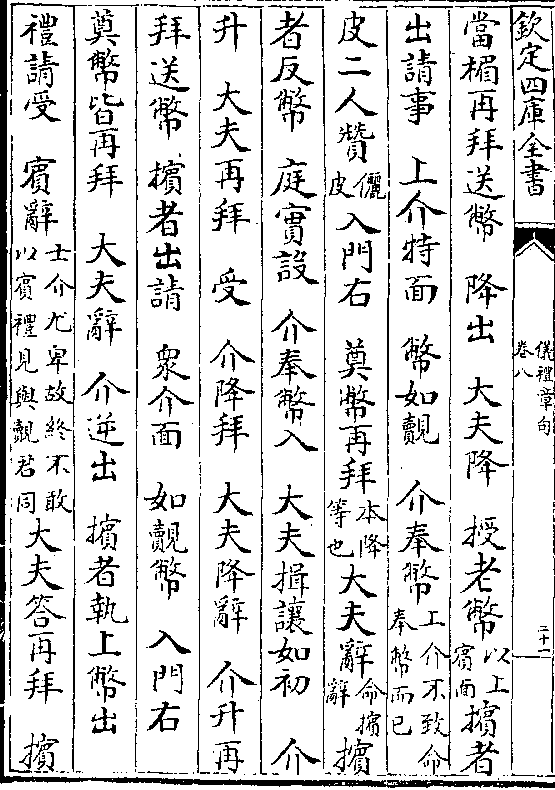 欽定四庫全書
儀禮章句
卷八
二十一
當楣再拜送幣　降出　大夫降　授老幣以上賓面擯者
出請事　上介特面　幣如覿　介奉幣上介不致命奉幣而已
皮二人贊儷皮入門右　奠幣再拜本降等也大夫辭命擯辭擯
者反幣　庭實設　介奉幣入　大夫揖讓如初　介
升　大夫再拜　受　介降拜　大夫降辭　介升再
拜送幣　擯者出請　衆介面　如覿幣　入門右
奠幣皆再拜　大夫辭　介逆出　擯者執上幣出
禮請受　賓辭士介尤卑故終不敢以賓禮見與覿君同大夫答再拜　擯